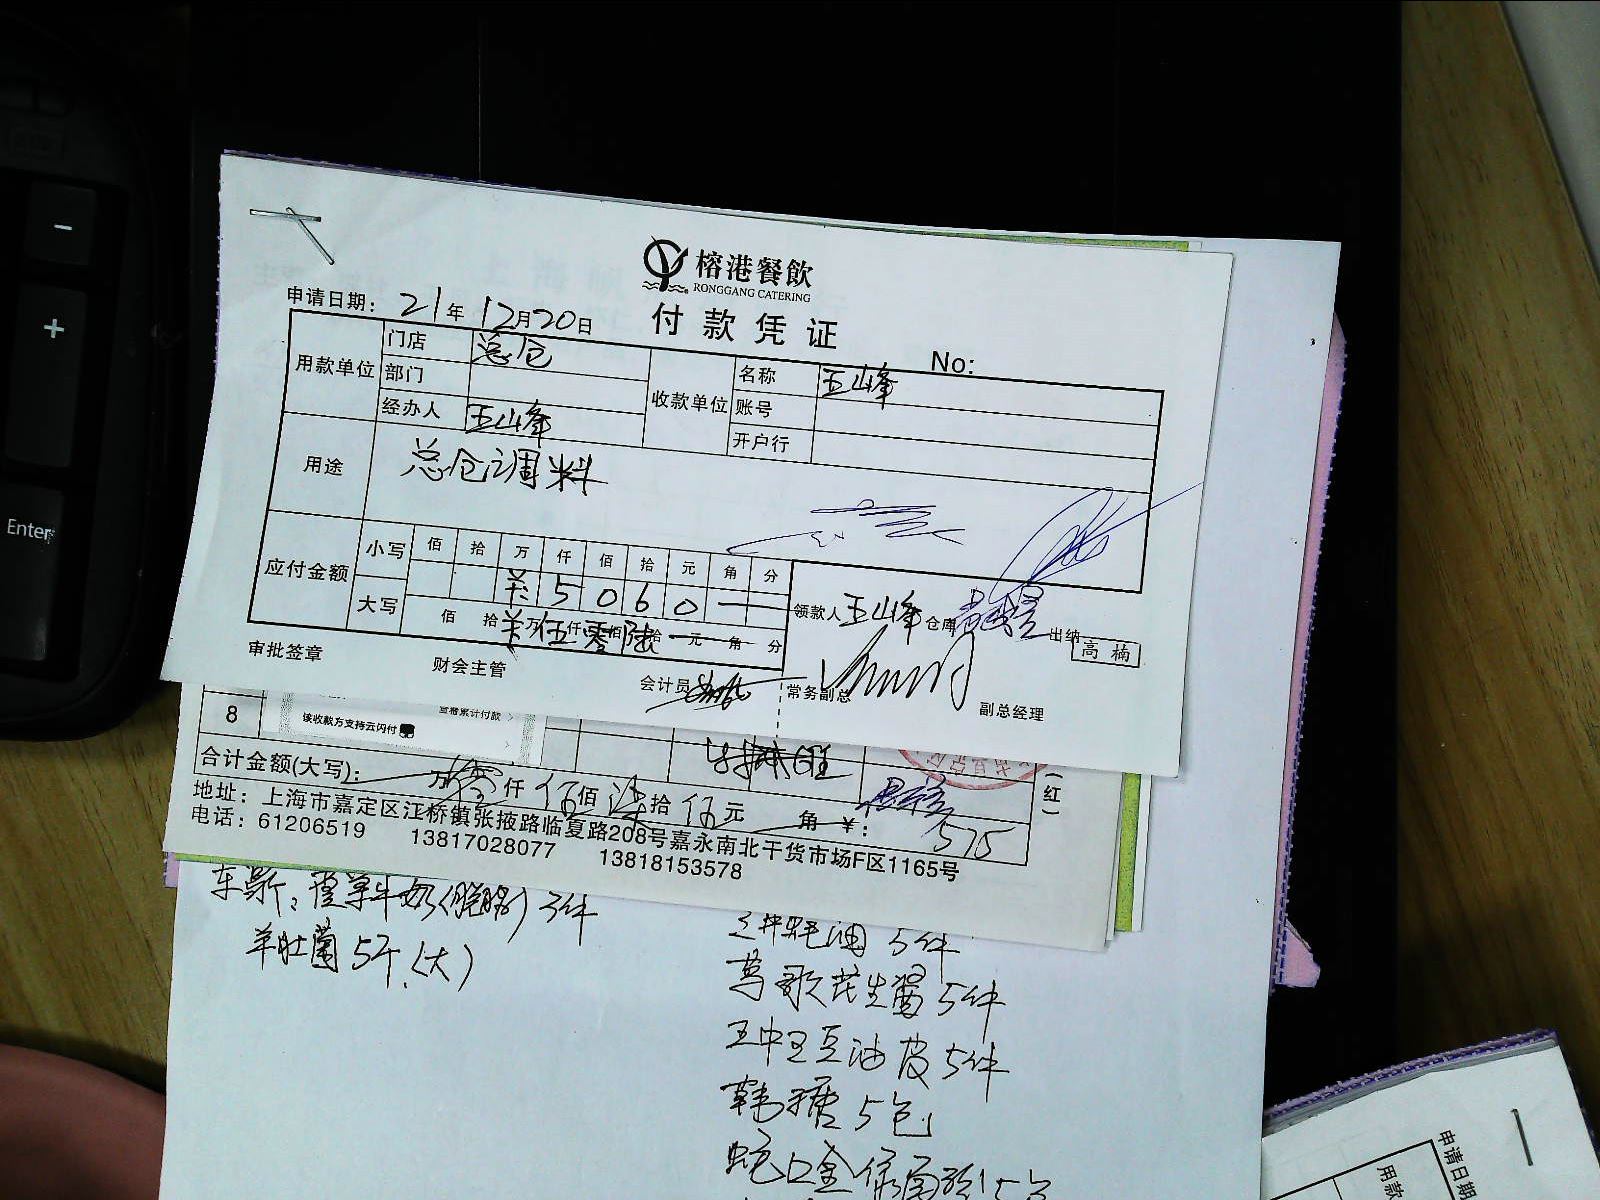 -
+
Enter
榕港餐飲
RONGGANG CATERING
付款凭证
申请日期: 21年12月20日
No:
用款单位 门店 总仓 收款单位 名称 王山峰
部门 账号
经办人 王山峰 开户行
用途 总仓调料
应付金额 小写 佰 拾 万 仟 佰 拾 元 角 分
5 0 6 0 —
大写 佰 拾 万伍仟零佰陆拾 元 角 分
领款人 王山峰 仓库 出纳 高楠
审批签章 财会主管 会计员 常务副总 副总经理
8
该收款方支持云闪付
查看累计付款
合计金额(大写): 万零仟伍佰柒拾伍元 角 ¥: 575
(红)
地址: 上海市嘉定区江桥镇张掖路临夏路208号嘉永南北干货市场F区1165号
电话: 61206519 13817028077 13818153578
羊肚菌 5斤(大)
蚝油 5件
花生酱 5件
豆油皮 5件
5包
申请日期
用款